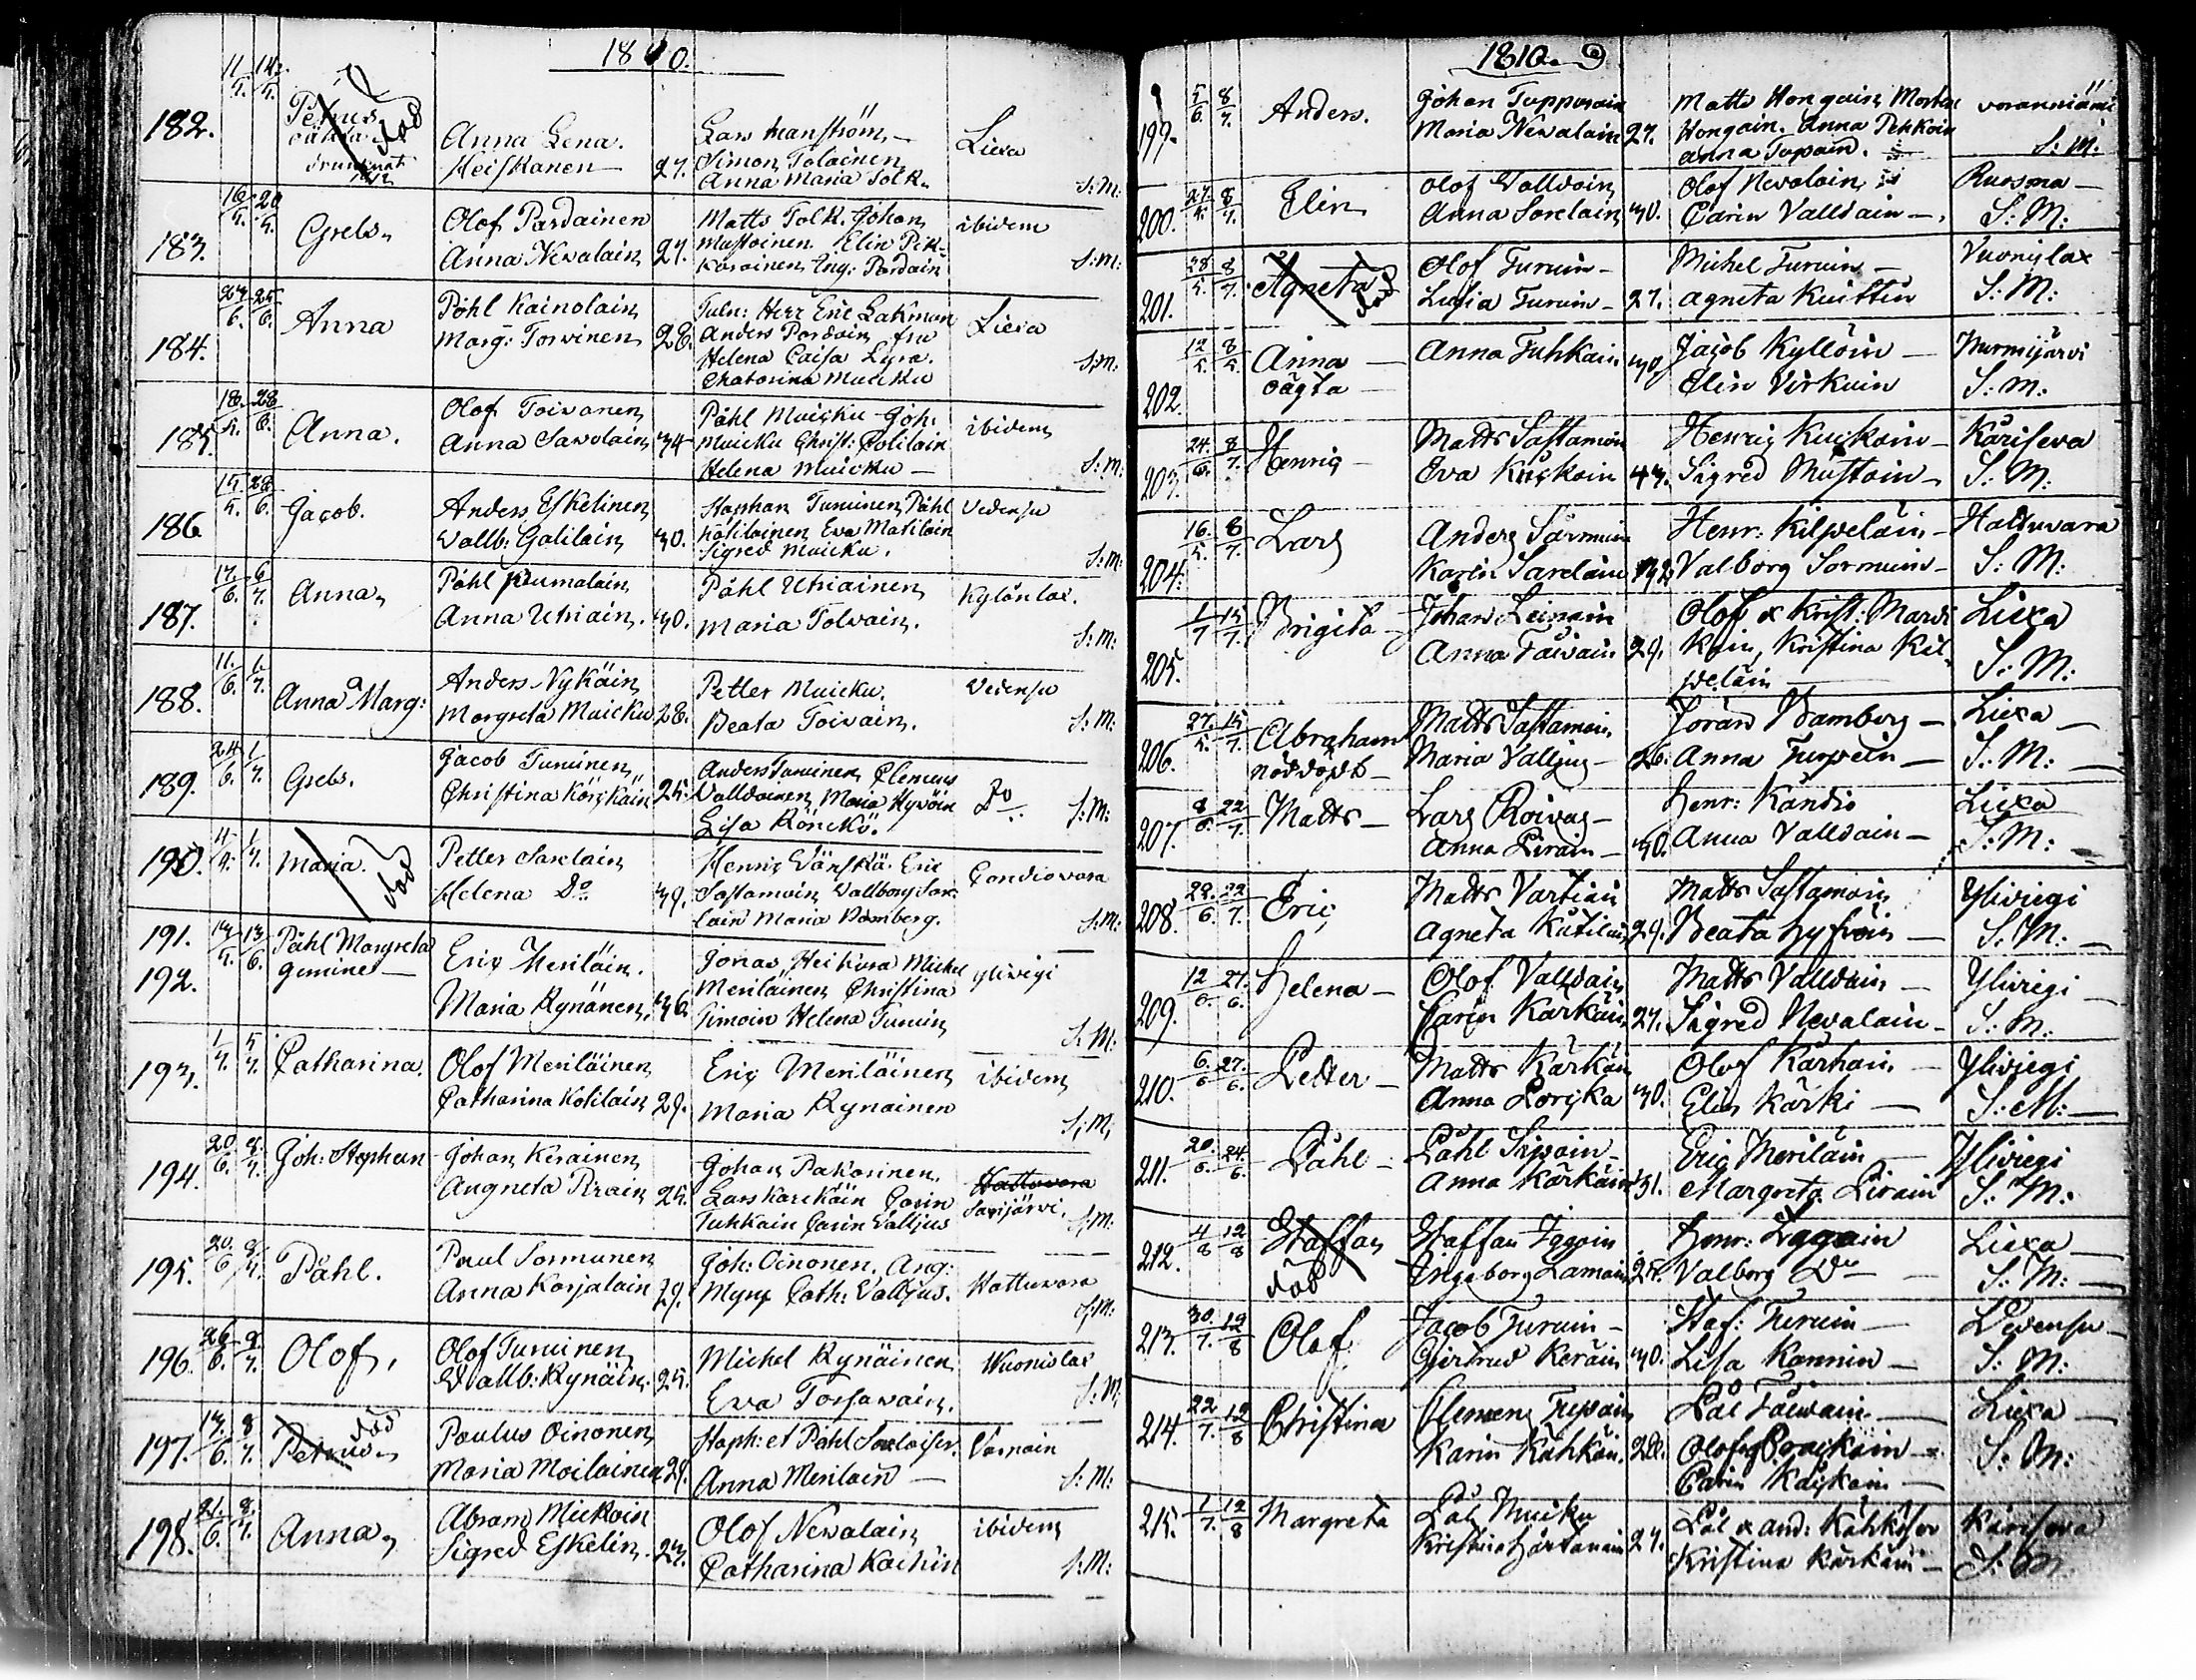 1810.
182. 11/5. 14/5. Petrus oäkta död
Anna Lena. Heiskanen 27.
Lars Manström Simon Tolainen Anna Maria Tolk.
Liexa S:M:
183. 16/5. 20/5. Grels.
Olof Pardainen
Anna Newalain 27.
Matts Tolk. Johan
Mustoinen Elin Pik-
karainen Ing: Pardain
ibidem S:M:
184. 25/6. Anna
Påhl Kainolain
Marg: Torvinen 28.
Tuln: Herr Eric Lakman
Anders Pardain fru
Helena Caisa Lyra.
Chatarina Muicku
Liexa S:M:
185. 18/5. 28/6. Anna.
Olof Toivanen
Anna Sawolain 34
Påhl Muicku Joh:
Muicku Christ: Cotilain
Helena Muicku
ibidem S:M:
186 15/5. 28/6. Jacob.
Anders Eskelinen
Wallb: Gotilain 30.
Staphan Turuinen Påhl
Kotilainen Eva Matilain
Sigred Muicku.
Vedensu S:M:
187. 17/6. 6/7. Anna
Påhl
Anna Utriain. 30.
Påhl Utriainen
Maria Tolvain.
Kylänlax. S:M:
188. 11/6. 1/7. Anna Marg:
Anders Nykäin
Margreta Muicku 28.
Petter Muicku.
Beata Toivain.
Vedensu S:M:
189. 24/6. 1/7. Grels.
Jacob Turuinen
Christina Körckäin 25.
Anders Turuinen Clemens
Valldainen Maria Hyvöin
Lisa Rönckö.
Do S:M:
190. 1/7. Maria. död
Petter Sarelain
Helena Do 39.
Henric Wänskä Eric
Sastamoin Wallborg Sare-
lain Maria Bamberg.
Condiovara S:M:
191. 13/6. Påhl Margreta
192. gemine
Eric Meriläin.
Maria Rynänen. 36
Jonas Heikura Michel
Meriläinen Christina
Timoin Helena Turuin
Ylivigi S:M:
193. 1/7. 5/7. Catharina.
Olof Meriläinen
Catharina Kotilain 29.
Eric Meriläinen
Maria Rynainen
ibidem S:M:
194. 20/6. 8/7. Joh: Stephan
Johan Kerainen
Angneta Pirain 25.
Johan Pakarinen.
Lars Karckäin Carin
Tuhkain Carin Valljus
Hattuvara
Sarijärvi. S:M:
195. 20/6 8/7. Påhl.
Paul Sormunen
Anna Korjalain 29.
Joh: Oinonen. Ang:
Myny Cath: Valljus.
Hattuvara S:M:
196. 26/6. 8/7. Olof.
Olof Turuinen
Wallb: Rynäin. 25.
Michel Rynäinen
Eva Torsawain.
Wuonislax S:M:
197. 17/6. 8/7. Petrus död
Paulus Oinonen
Maria Moilainen 29.
Staph: et Påhl
Anna Merilain
Varnain S:M:
198. 21/6. 8/7. Anna
Abram Mickoin
Sigred Eskelin. 23.
Olof Newalain
Catharina Kaihin
ibidem S:M:
1810.
199. 5/6. 8/7. Anders.
Johan Tuppurain
Maria Newalain 27.
Matts Hongain
Hongain. Anna Pehkoin
Anna Tupain.
S:M:
200. 27/5. 8/7. Elin
Olof Valldain
Anna Sarelain 30.
Olof Nevalain
Carin Valldain
Ruosma S:M:
201. 28/5. 8/7. Agneta död
Olof Turuin
Lusia Turuin 27.
Michel Turuin
Agneta Kuittin
Vuonislax S:M:
202. 12/5. 8/5. Anna oägta
Anna Tuhkain. 30
Jacob Kyllöin
Elin Virkuin
Nurmijärvi S:M:
203. 24/6. 8/7. Henric
Matts Sastamoin
Eva Kuckoin 43.
Henric Kuckoin
Sigred Mustoin
Kariseva S:M:
204. 16/5. 8/7. Lars
Anders Sormuin
Karin Sarelain 42
Henr: Kilpeläin
Valborg Sormuin
Hattuvara S:M:
205. 1/7 15/7. Brigita
Johan Leinoin
Anna Taivain 29.
Olof & Krist: Mardi
Kain Kristina Kil-
peläin
Liexa S:M:
206. 27/5. 15/7. Abraham nöddöpt
Matts Sastamoin
Maria Valljus 26.
Jöran Bamberg
Anna Turpein
Liexa S:M:
207. 8/6. 22/7. Matts
Lars Roivas
Anna Pirain 30.
Henr: Kandio
Anna Valldain
Liexa S:M:
208. 28/6. 22/7. Eric
Matts Vartiain
Agneta Kåtilain 29.
Matts Sastamoin
Beata Hyfvöin
Ylivigi S:M:
209. 12/6. 27/6. Helena
Olof Valldain
Carin Kärkäin 27.
Matts Valldain
Sigred Nevalain
Ylivigi S:M:
210. 6/6 27/6. Petter
Matts Kärkäin
Anna Lorycka 30.
Olof Kärhäin
Elin Kärki
Ylivigi S:M:
211. 20/6. 24/6. Påhl
Påhl Sipoin
Anna Kärkäin 31.
Eric Meriläin
Margreta Pirain
Ylivigi S:M:
212. 4/8 12/8 Staffan död
Staffan Iggoin
Ingeborg Lamain 25.
Henr:
Valborg Do
Liexa S:M:
213. 30/7. 12/8 Olof
Jacob Turuin
Giertrud Keräin 30.
Staf: Turuin
Lisa Kannin
Wedensu S:M:
214. 22/7. 12/8 Christina
Clemens Tupain
Karin Kähkön. 28.
Pål Taivain
Olof
Carin
Liexa S:M:
215. 1/7. 12/8 Margreta
Pål Muiku
Kristina Hartanain 27.
Pål & And:
Kristina Kärkäin
Kariseva S:M: